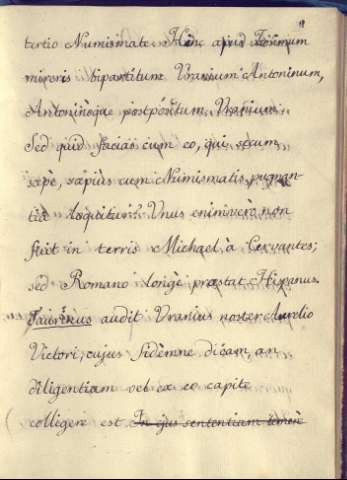 tertio Numismate. Hinc apud Zosimum
mireris bipartitum Uranium Antoninum,
Antoninoque postpositum Uranium.
Sed quid facias cum eo, qui secum
sæpè, sæpiùs cum Numismatis pugnan-
tia loquitur? Unus enimverò non
fuit in terris Michael à Cervantes;
sed Romano longè præstat Hispanus.
Taurinus audit Uranius noster Aurelio
Victori, cujus fidemne dicam, an
diligentiam vel ex eo capite
colligere est In ejus sententiam temerè